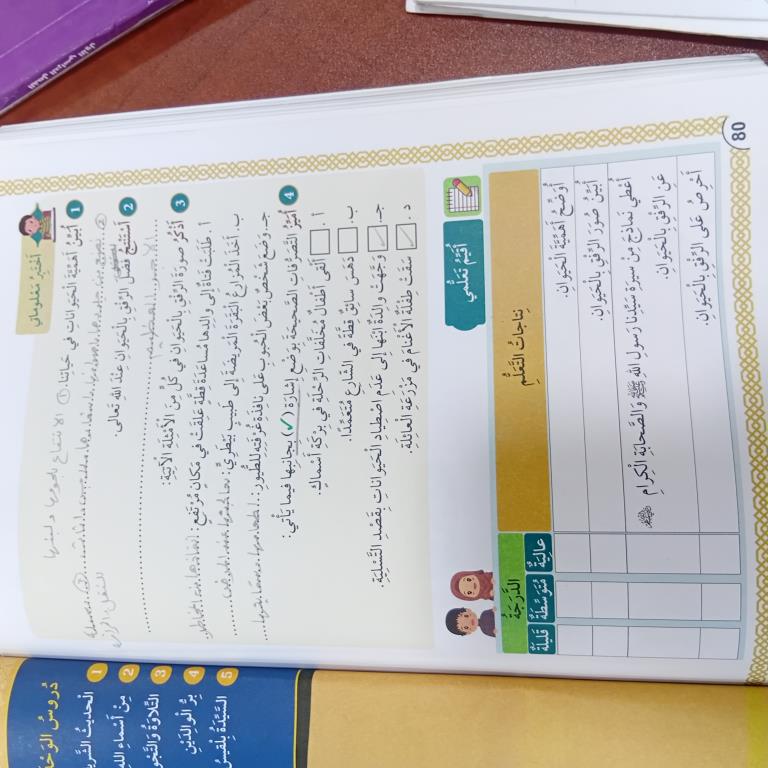 أَخْتَبِرُ مَعْلُوماتي
1 أُبَيِّنُ أَهَمِّيَّةَ الْحَيَواناتِ في حَياتِنا. ① الانتفاع بلحومها
2 أَسْتَنْتِجُ فَضْلَ الرِّفْقِ بِالْحَيَوانِ عِنْدَ اللهِ تَعالى.
3 أَذْكُرُ صورَةَ الرِّفْقِ بِالْحَيَوانِ في كُلٍّ مِنَ الْأَمْثِلَةِ الْآتِيَةِ:
أ . طَلَبَتْ فَتاةٌ إِلى والِدِها مُساعَدَةَ قِطَّةٍ عَلِقَتْ في مَكانٍ مُرْتَفِعٍ:
ب. أَخَذَ الْمُزارِعُ الْبَقَرَةَ الْمَريضَةَ إِلى طَبيبٍ بَيْطَرِيٍّ:
جـ. وَضَعَ شَخْصٌ بَعْضَ الْحُبوبِ عَلى نافِذَةِ غُرْفَتِهِ لِلطُّيورِ:
4 أُمَيِّزُ التَّصَرُّفاتِ الصَّحيحَةَ بِوَضْعِ إِشارَةِ (✓) بِجانِبِها فيما يَأْتي:
أ . أَلْقى أَطْفالٌ مُخَلَّفاتِ الرِّحْلَةِ في بِرْكَةِ أَسْماكٍ.
ب. دَهَسَ سائِقٌ قِطَّةً في الشّارِعِ مُتَعَمِّدًا.
جـ. ✓ وَجَّهَتْ والِدَةٌ ابْنَها إِلى عَدَمِ اصْطِيادِ الْحَيَواناتِ بِقَصْدِ التَّسْلِيَةِ.
د . ✓ سَقَتْ طِفْلَةٌ الْأَغْنامَ في مَزْرَعَةِ الْعائِلَةِ.
أُقَيِّمُ تَعَلُّمي
نِتاجاتُ التَّعَلُّمِ
الدَّرَجَةُ
عالِيَةٌ مُتَوَسِّطَةٌ قَليلَةٌ
أُوَضِّحُ أَهَمِّيَّةَ الْحَيَوانِ.
أُبَيِّنُ صُوَرَ الرِّفْقِ بِالْحَيَوانِ.
أُعْطي نَماذِجَ مِنْ سيرَةِ سَيِّدِنا رَسولِ اللهِ ﷺ وَالصَّحابَةِ الْكِرامِ
عَنِ الرِّفْقِ بِالْحَيَوانِ.
أَحْرِصُ عَلى الرِّفْقِ بِالْحَيَوانِ.
80
دُروسُ
1 الْحَديثُ
2 مِنْ أَسْماءِ اللهِ
3 التِّلاوَةُ
4 بِرُّ الْوالِدَيْنِ
5 السَّيِّدَةُ بِلْقيسُ
الفصل الدراسي الأول